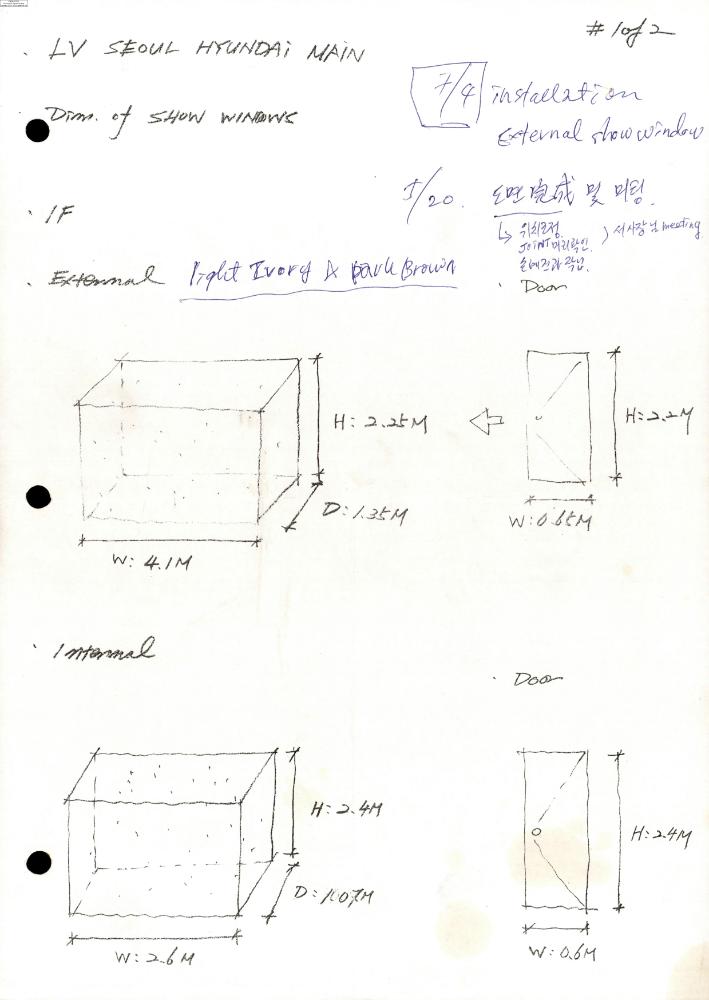 # 1 of 2
· LV SEOUL HYUNDAI MAIN
7/4 installation
External show window
· Dim. of SHOW WINDOWS
5/20. 도면 完成 및 미팅.
↳ 위치조정.
JOINT 미리확인.
) 서사장님 meeting.
· 1F
· External Light Ivory & Dark Brown
· Door
H: 2.25M
D: 1.35M
W: 4.1M
H: 2.2M
W: 0.65M
· Internal
· Door
H: 2.4M
D: 1.07M
W: 2.6M
H: 2.4M
W: 0.6M